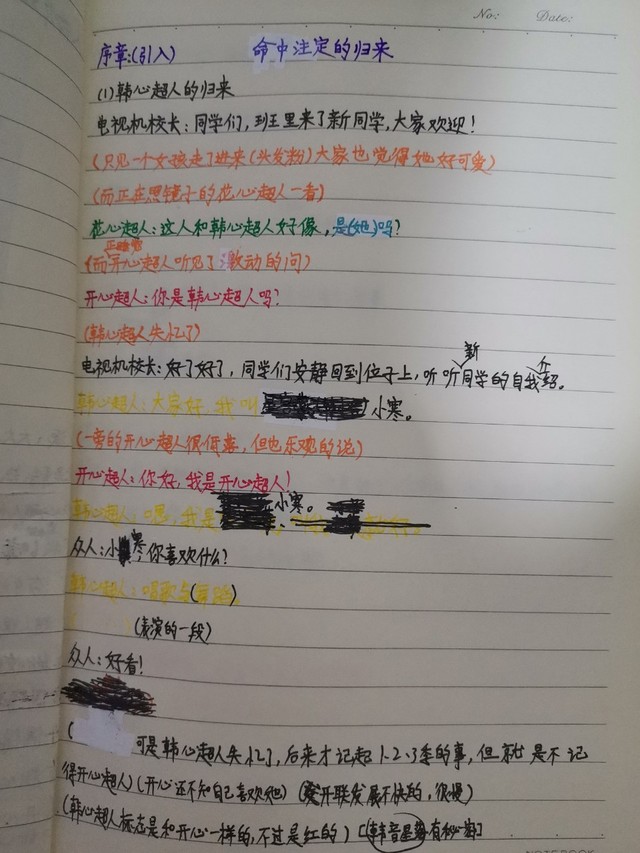 No: Date:
序章:(引入) 命中注定的归来
(1)韩心超人的归来
电视机校长:同学们,班里来了新同学,大家欢迎!
(只见一个女孩走了进来(头发粉)大家也觉得她好可爱)
(而正在照镜子的花心超人一看)
花心超人:这人和韩心超人好像,是(她)吗?
(而开心超人听见了激动的问)
开心超人:你是韩心超人吗?
(韩心超人失忆了)
电视机校长:好了好了,同学们安静回到位子上,听听新同学的自我介绍。
韩心超人:大家好,我叫 小寒。
(一旁的开心超人很低落,但也乐观的说)
开心超人:你好,我是开心超人!
韩心超人:嗯,我是 小寒。
众人:小寒,你喜欢什么?
韩心超人:唱歌与(舞蹈)
(表演的一段)
众人:好看!
( 可是韩心超人失忆了,后来才记起1、2、3季的事,但就是不记
得开心超人)(开心还不知自己喜欢她)(开联发展不快的,很慢)
(韩心超人标志是和开心一样的,不过是红的)[(韩音星有秘密]
NOTEBOOK